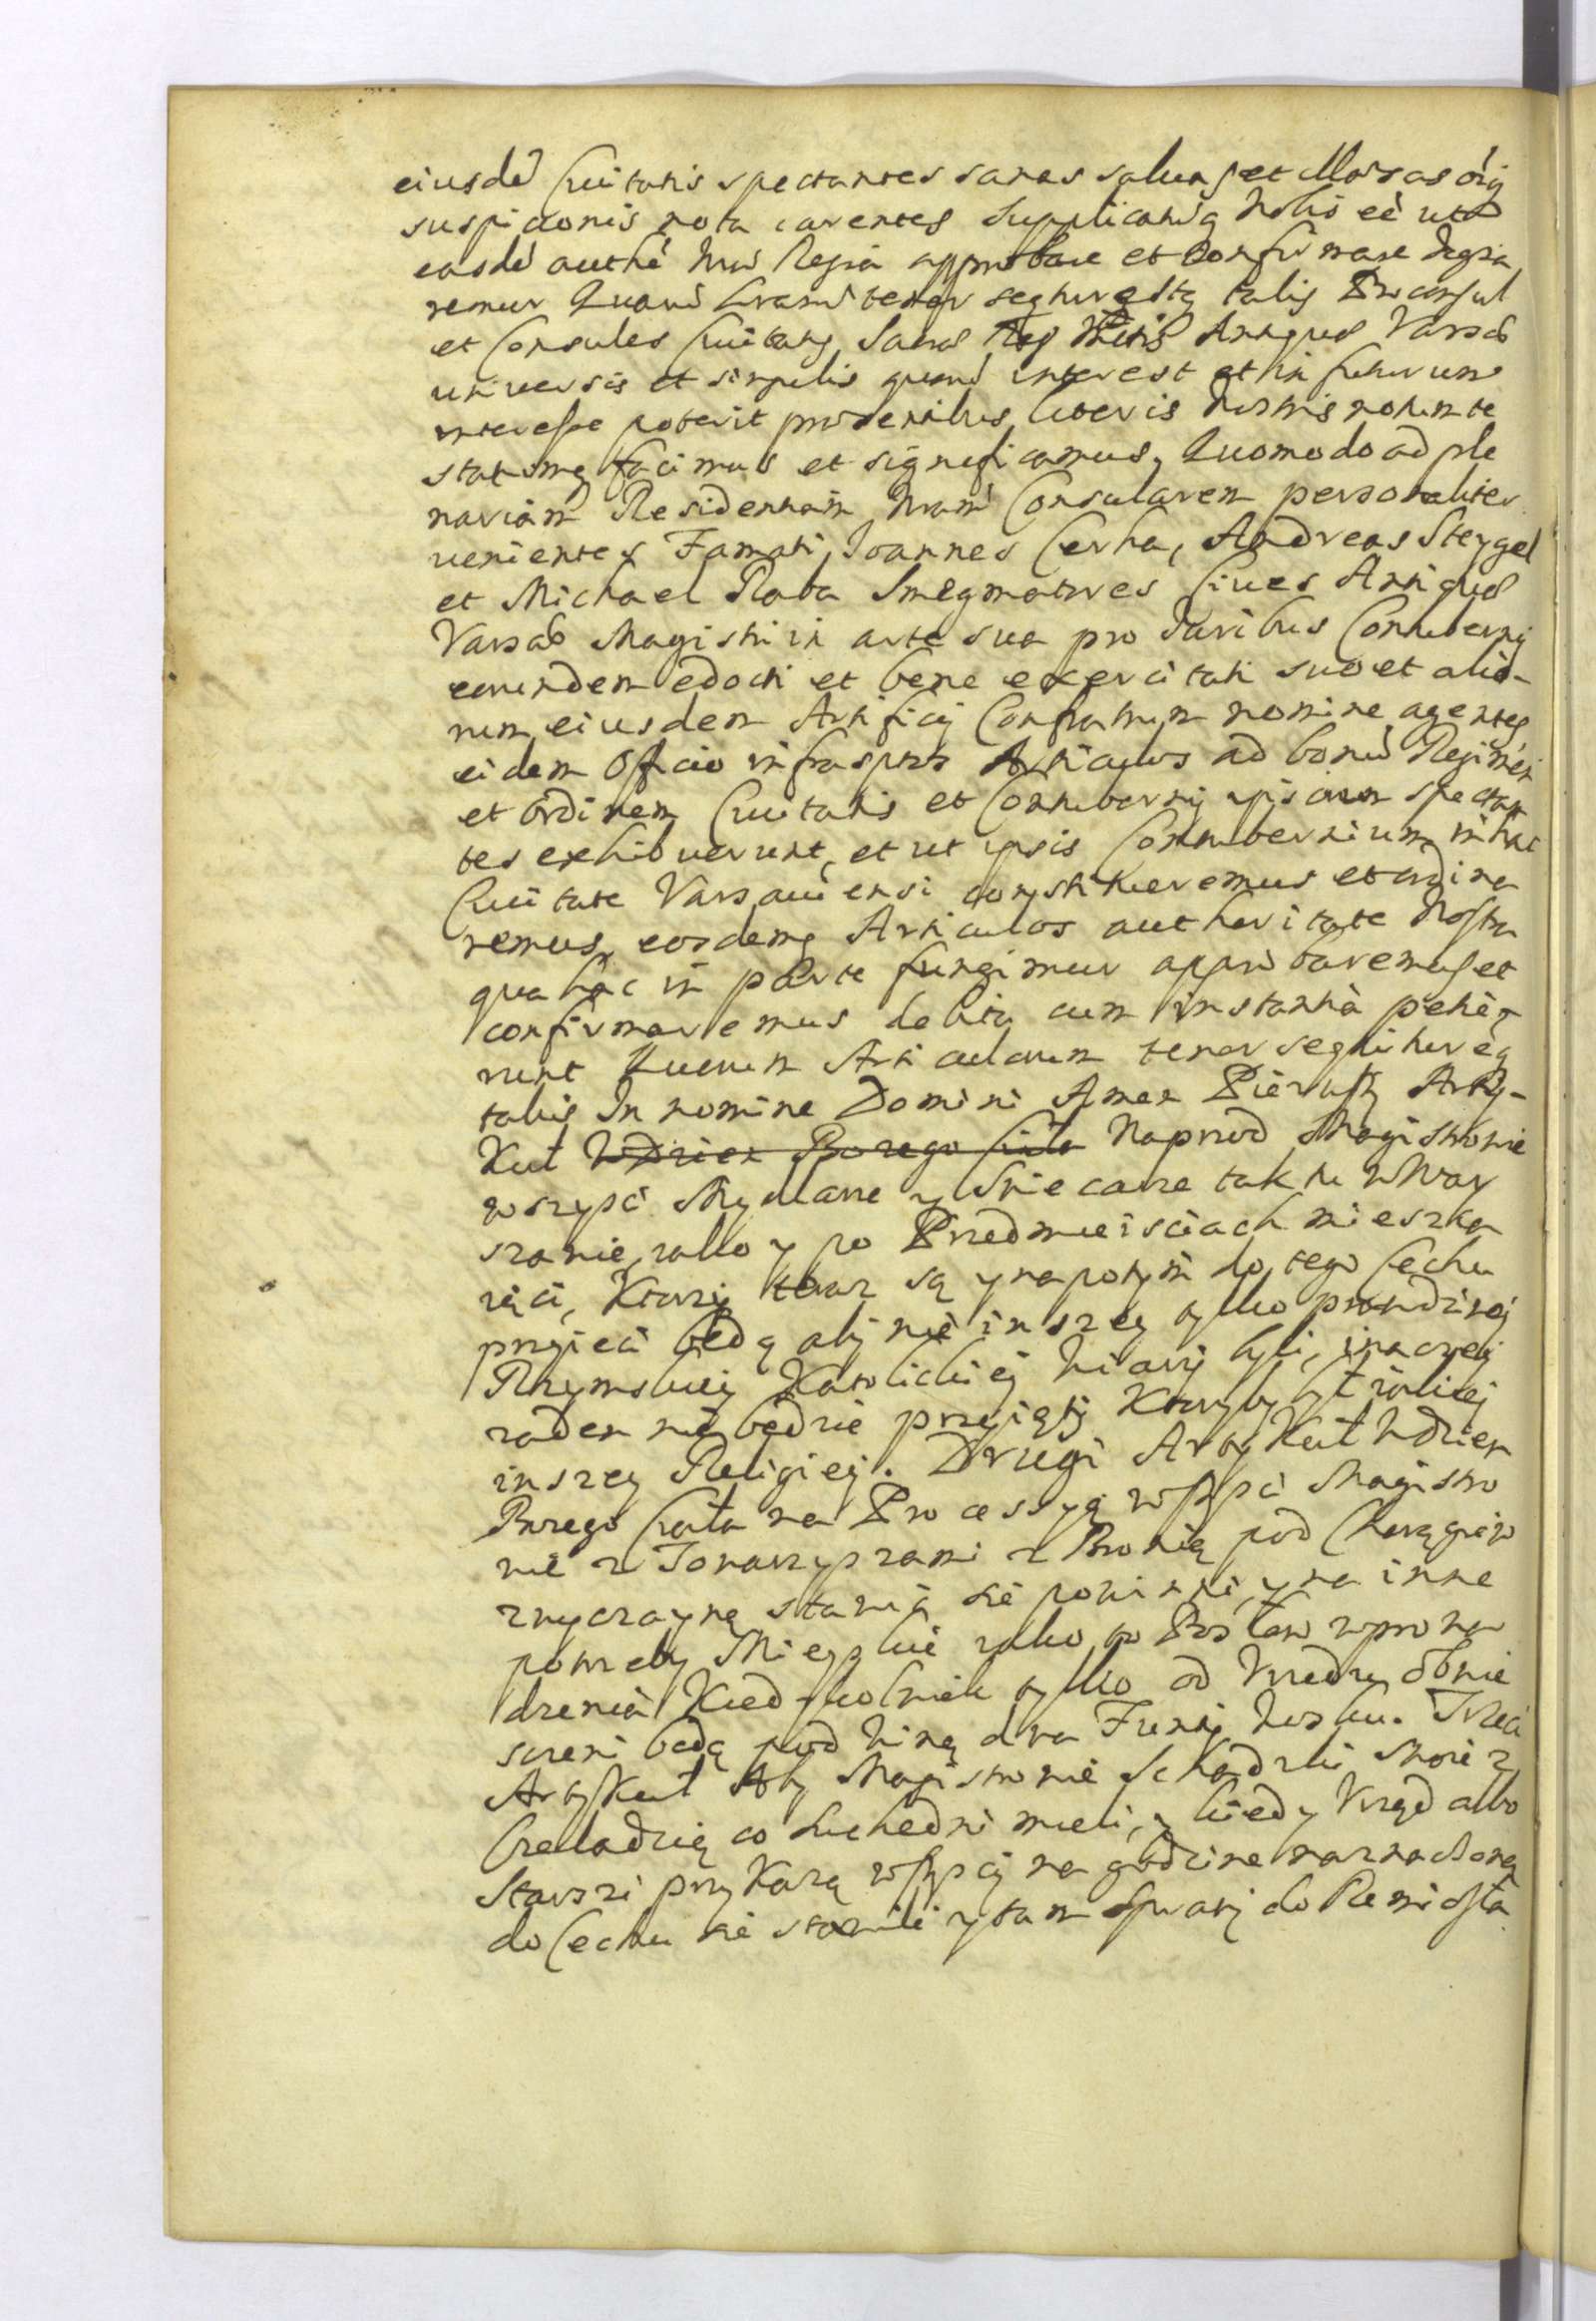 eiusdē Ciuitatis spectantes sanas saluas et illaesas oīq
suspicionis nota carentes Supplicatūq Nobis eē ut
easdē authē Nrā Regia approbare et Confirmare digna
remur Quarū Lrarū tenor seqtur estq talis Proconsul
et Consules Ciuitatis Sacrae Reg Mttis Antiquae Varsae
uniuersis et singulis quorū interest et in futurum
interesse poterit praesentibus literis nostris notum te
statumq facimus et significamus, Quomodo ad ple
nariam Residentiam Nram Consularem personaliter
uenientes Famati Joannes Cerha, Andreas Steygel
et Michael Raba Smegmatores Ciues Antiquae
Varsae Magistri in arte sua pro Iuribus Contuberny
eorundem edocti et bene exercitati suo et alio-
rum eiusdem Artificij Confratrum nomine agentes
eidem Officio infrascptos Articulos ad bonū Regimen
et ordinem Ciuitatis et Contubernij ipsorum spectan
tes exhibuerunt, et ut ipsis Contubernium in hac
Ciuitate Varsauiensi constitueremus et ordina
remus, eosdemq Articulos autheritate Nostra
qua hac in parte fungimur approbaremus et
confirmaremus debita cum instantia petie-
runt Quorum Articulorum tenor sequitur eq
talis In nomine Domini Amen Pierwszy Arty-
kuł Wdzien Bozego Ciała Naprzod Magistrowie
wszyscy Mydlarze y Swiecarze tak tu w War
szawie, iako y po Przedmieisciach mieszka
iący, Ktorzy teraz są y napotym do tego Cechu
przyięci będą aby nie inszey tylko prawdziwey
Rzymskiey Katolickiey Wiary byli, inaczey
zaden nie będzie przyięty Ktoryby był iakiey
inszey Religiey. Drugi Artykuł Wdzien
Bozego Ciała na Processyą wszyscy Magistro
wie z Towarzyszami z Bronią pod Chorągwią
zwyczayną stawic się powinni, y na inne
potrzeby Mieyskie iako to Posłow wprowa
dzenia Kiedykolwiek tylko od Urzędu obwie
sczeni będą pod winą dwa Funty Wosku. Trzeci
Artykuł Aby Magistrowie Schadzki swoie z
Czeladzią co Suchedni mieli, y kiedy Urząd albo
Starszi przykażą wszyscy na godzinę naznaczoną
do Cechu się stawili y tam Sprawy do Rzemiosła